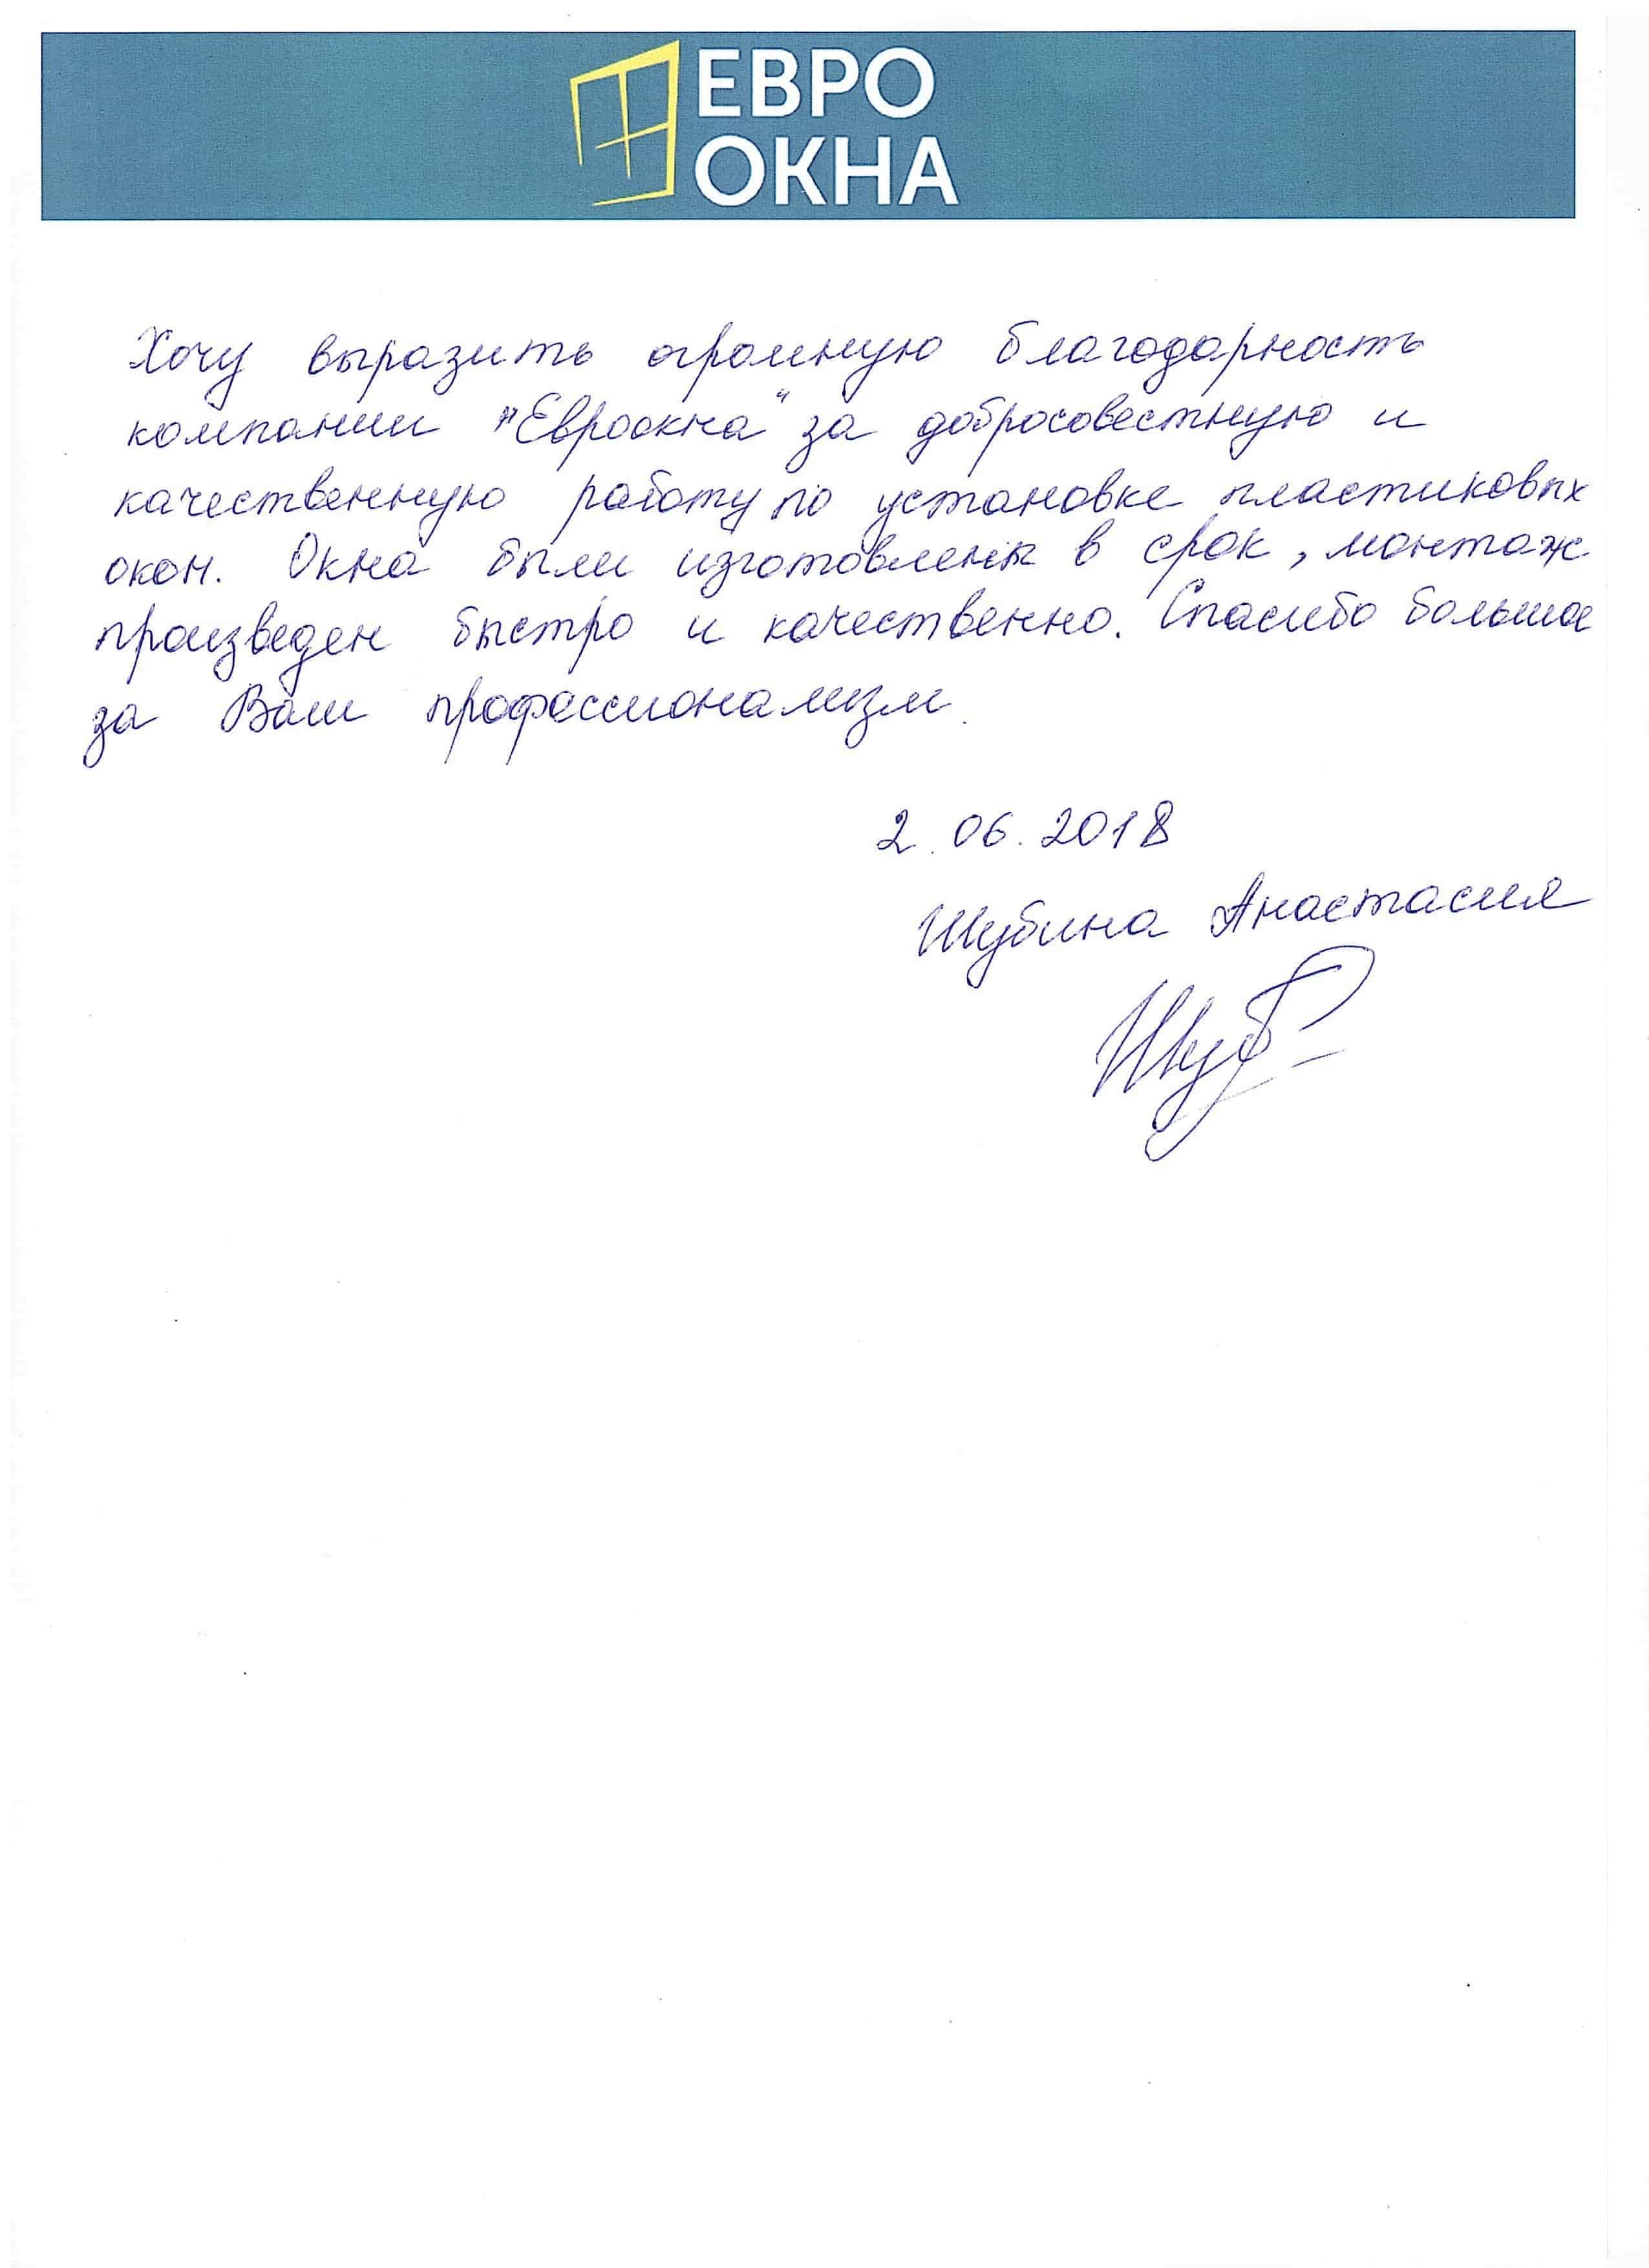 ЕВРО
ОКНА
Хочу выразить огромную благодарность
компании "Евроокна" за добросовестную и
качественную работу по установке пластиковых
окон. Окна были изготовлены в срок, монтаж
произведен быстро и качественно. Спасибо большое
за Ваш профессионализм.
2.06.2018
Шубина Анастасия
Шуб